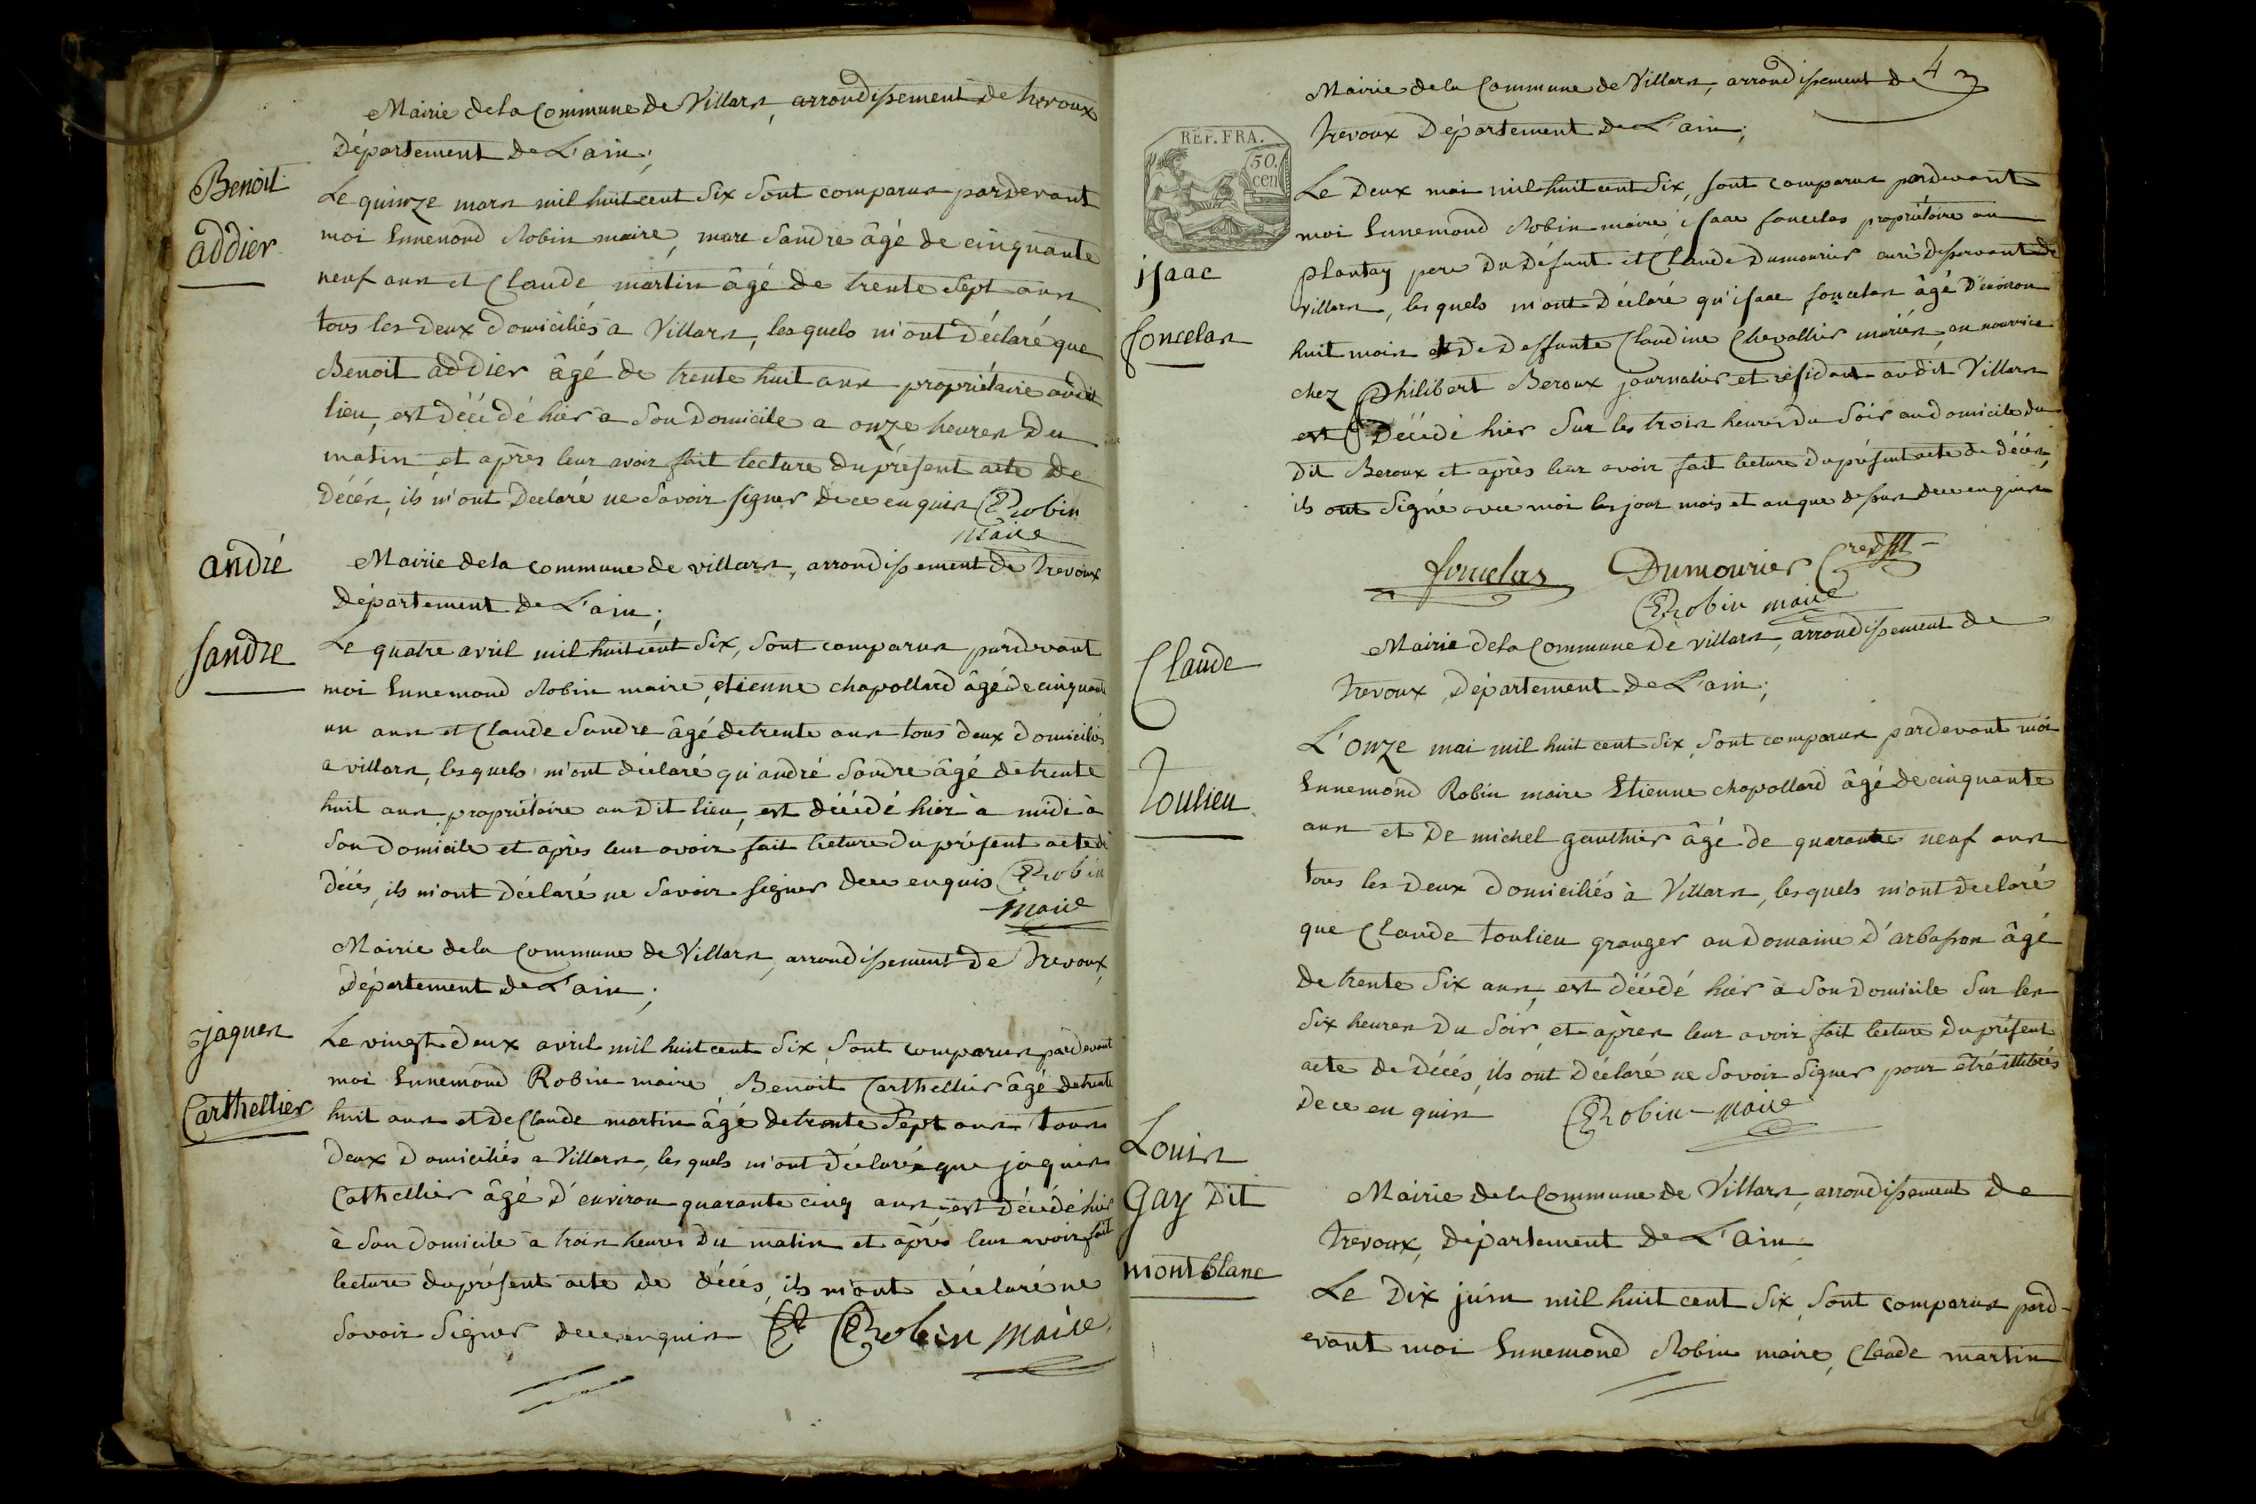 Mairie de la Commune de Villars, arrondissement de trevoux
Département de L'ain;
Benoit
addier
Le quinze mars mil huit cent Six Sont comparus pardevant
moi Ennemond Robin maire, marc Sandre âgé de cinquante
neuf ans et Claude martin âgé de trente Sept ans
tous les deux domiciliés a Villars, lesquels m'ont déclaré que
Benoit addier âgé de trente huit ans propriétaire audit
lieu, est décédé hier a Son Domicile a onze heures du
matin et après leur avoir fait lecture du présent acte de
Décés, ils m'ont Declaré ne Savoir signer de ce enquis Robin
Maire
andré
Sandre
Mairie de la commune de villars, arrondissement de Trevoux
Département de L'ain;
Le quatre avril mil huit cent Six, Sont comparus pardevant
moi Ennemond Robin maire, etienne chapollard âgé de cinquante
un ans et Claude Sandre âgé de trente ans tous deux domiciliés
a villars, lesquels m'ont déclaré qu'andré Sandre âgé de trente
huit ans propriétaire audit lieu, est décédé hier à midi à
Son domicile et après leur avoir fait lecture du présent acte de
décés, ils m'ont déclaré ne Savoir signer de ce enquis Robin
Maire
Mairie de la Commune de Villars, arrondissement de Trevoux,
Département de L'ain;
jaques
Carthellier
Le vingt deux avril mil huit cent Six Sont comparus pardevant
moi Ennemond Robin maire Benoit Carthellier âgé de trente
huit ans et de Claude martin âgé de trente Sept ans tous
deux Domiciliés a Villars, lesquels m'ont déclaré que jaques
Cathellier âgé d'environ quarante cinq ans est décédé hier
à Son domicile à trois heures du matin et après leur avoir fait
lecture du présent acte de décés, ils m'ont déclaré ne
Savoir Signer de ce enquis Robin Maire
4
Mairie de la Commune de Villars, arrondissement de
Trevoux Département de L'ain;
REP. FRA.
50.
cen
isaac
foncelas
Le Deux mai mil huit cent Six, Sont comparus pardevant
moi Ennemond Robin maire, isaac foncelas propriétaire au
plantay pere Du Défunt et Claude Dumourier curé desservant de
Villars, lesquels m'ont Déclaré qu'isaac foncelas âgé D'environ
huit mois et De Deffunte Claudine Chevallier mariés, en nourrice
chez Philibert Beroux journalier et résidant audit Villars
est Décédé hier Sur les trois heures Du Soir au domicile du
Dit Beroux et après leur avoir fait lecture du présent acte de décés,
ils ont Signé avec moi les jour mois et an que dessus de ce enquis
foncelas Dumourier
Robin Maire
Claude
Toulieu
Mairie de la Commune De villars, arrondissement de
Trevoux, Département de L'ain;
L'onze mai mil huit cent Six, Sont comparus pardevant moi
Ennemond Robin maire Etienne chapollard âgé de cinquante
ans et De michel gauthier âgé de quarante neuf ans
tous les Deux domiciliés à Villars, lesquels m'ont declaré
que Claude toulieu granger au domaine D'arbasson âgé
de trente Six ans, est décédé hier à Son Domicile Sur les
Six heures Du Soir, et après leur avoir fait lecture Du présent
acte de Décés, ils ont Déclaré ne Savoir Signer pour être illitérés
De ce enquis Robin Maire
Louis
Gay Dit
montblanc
Mairie de la Commune de Villars, arrondissement de
Trevoux, département de L'ain;
Le Dix juin mil huit cent Six, Sont comparus pard-
evant moi Ennemond Robin maire, Claude martin